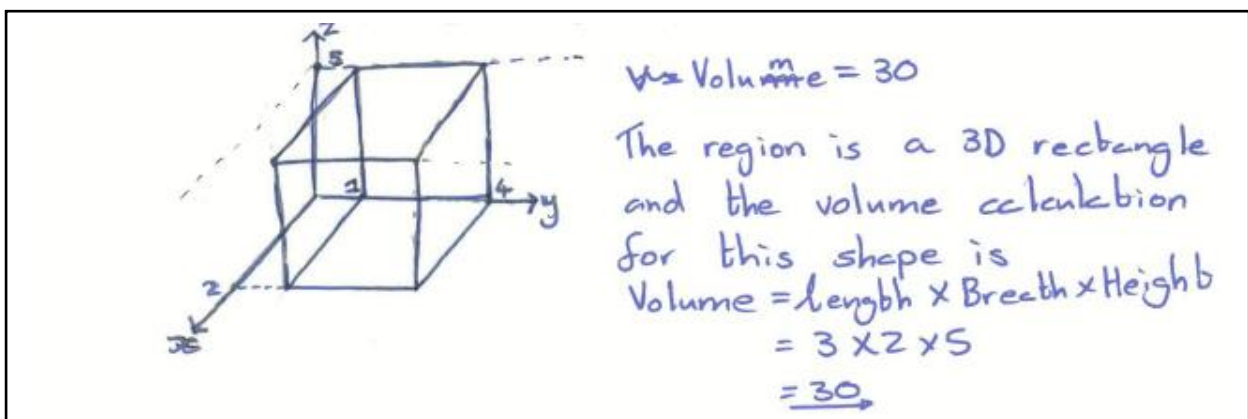 z
5
1
4
y
2
x
Volume = 30
The region is a 3D rectangle
and the volume calculation
for this shape is
Volume = Length × Breath × Height
= 3 × 2 × 5
= 30